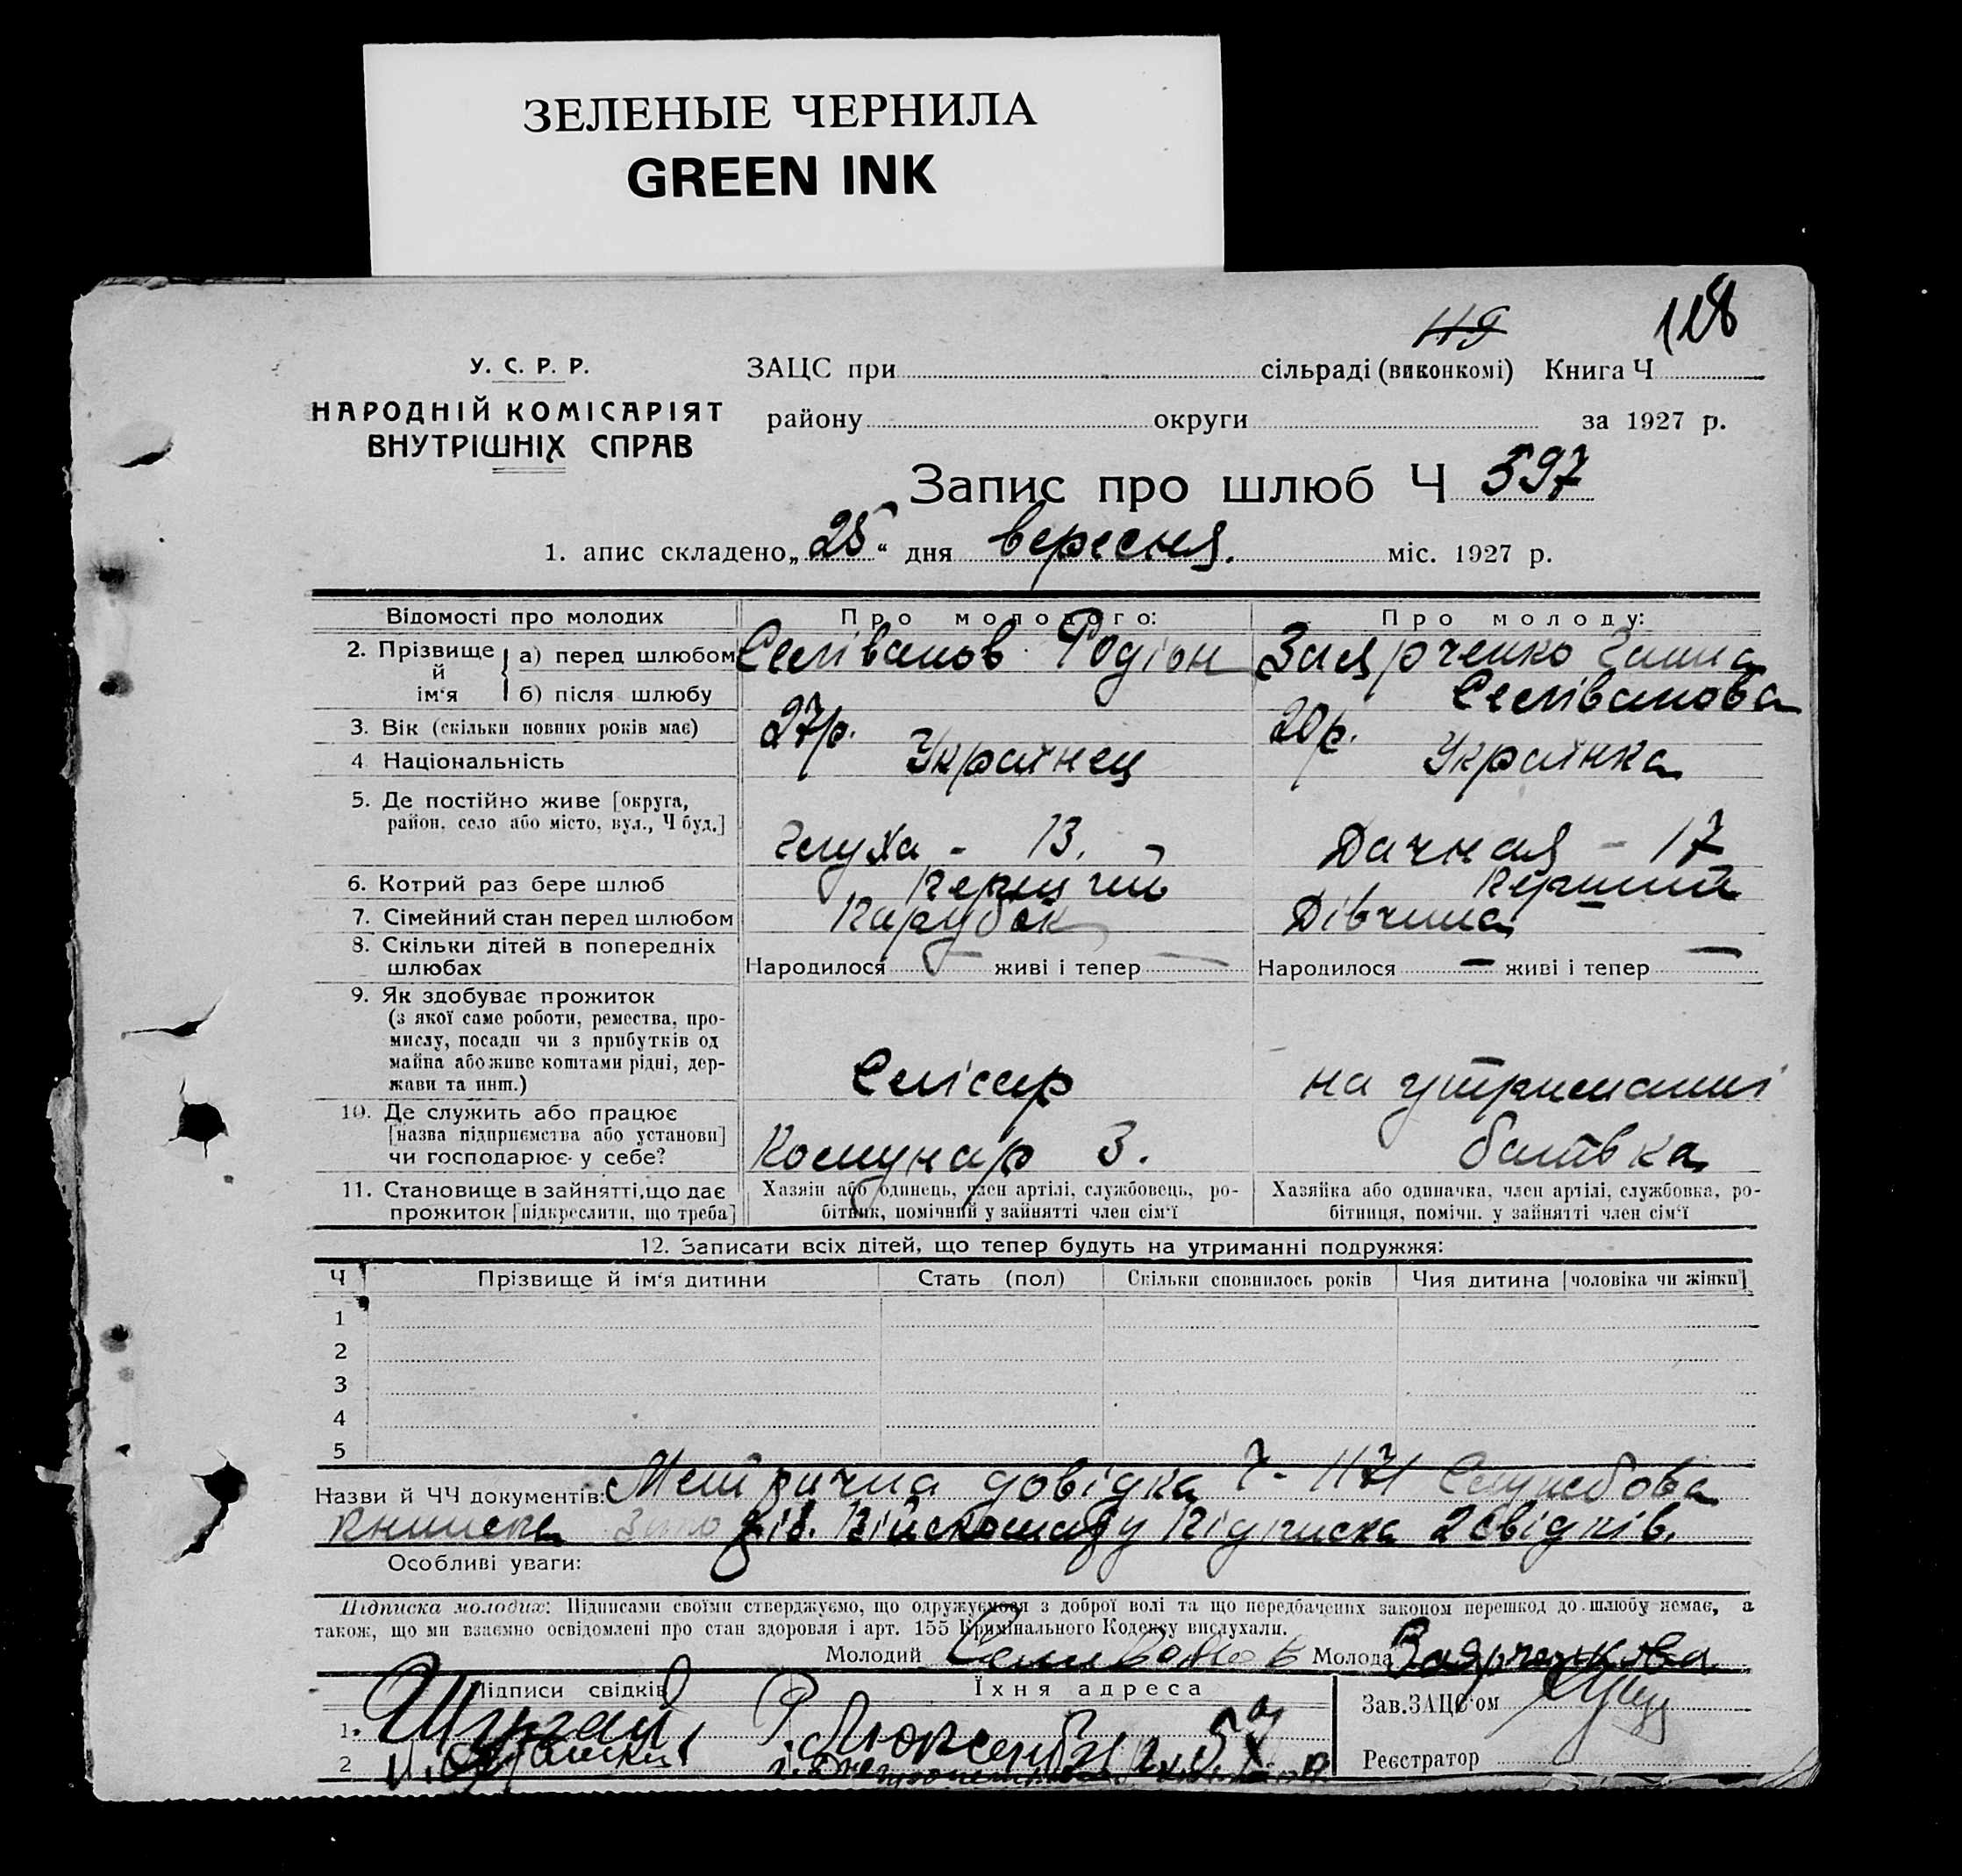 ЗЕЛЕНЫЕ ЧЕРНИЛА
GREEN INK
119
118
У. С. Р. Р.
НАРОДНІЙ КОМІСАРІЯТ
ВНУТРІШНІХ СПРАВ
ЗАЦС при сільраді (виконкомі) Книга Ч
району округи за 1927 р.
Запис про шлюб Ч 597
1. апис складено „25“ дня вересня. міс. 1927 р.
Відомості про молодих Про молодого: Про молоду:
2. Прізвище й ім'я а) перед шлюбом Селіванов Родіон Заярченко Ганна
б) після шлюбу Селіванова
3. Вік (скільки повних років має) 27 р. 20 р.
4 Національність Українец Українка
5. Де постійно живе [округа,
район, село або місто, вул., Ч буд.] Глуха - 13. Дачная - 17
6. Котрий раз бере шлюб Перший Перший
7. Сімейний стан перед шлюбом Парубок Дівчина
8. Скільки дітей в попередніх
шлюбах Народилося — живі і тепер — Народилося — живі і тепер —
9. Як здобуває прожиток
(з якої саме роботи, ремества, про-
мислу, посади чи з прибутків од
майна або живе коштами рідні, дер-
жави та инш.) Слісар на утриманні
10. Де служить або працює
[назва підприємства або установи]
чи господарює у себе? Комунар З. батька
11. Становище в зайнятті, що дає
прожиток [підкреслити, що треба]
Хазяїн або одинець, член артілі, службовець, ро-
бітник, помічний у зайнятті член сім'ї
Хазяйка або одиначка, член артілі, службовка, ро-
бітниця, помічн. у зайнятті член сім'ї
12. Записати всіх дітей, що тепер будуть на утриманні подружжя:
Ч Прізвище й ім'я дитини Стать (пол) Скільки сповнилось років Чия дитина [чоловіка чи жінки]
1
2
3
4
5
Назви й ЧЧ документів: Метрична довідка Ч- 1171 Службова
книжка Війскомату Підписка 2 свідків.
Особливі уваги:
Підписка молодих: Підписами своїми стверджуємо, що одружуємося з доброї волі та що передбачених законом перешкод до шлюбу немає, а
також, що ми взаємно освідомлені про стан здоровля і арт. 155 Кримінального Кодексу вислухали.
Молодий Селиванов Молода Заярченкова
Підписи свідків Їхня адреса Зав. ЗАЦС'ом
1. Р. Люксембург 57
2 Реєстратор